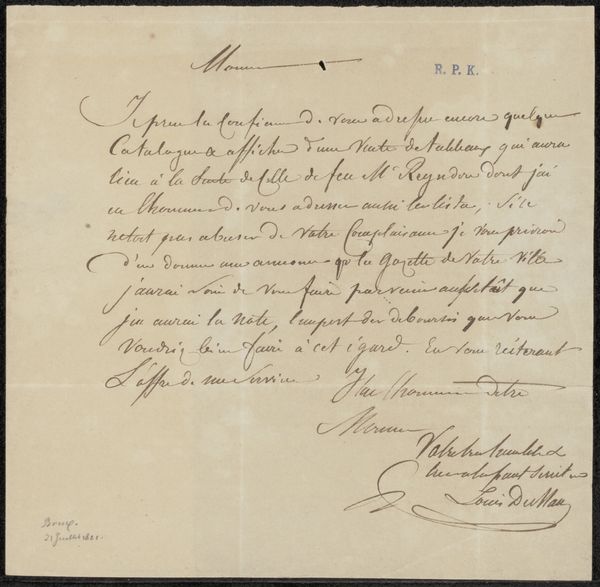 Monsieur
R. P. K.
Je prens la Confiance de vous adresser encore quelque
Catalogue & affiche d'une Vente de tableaux qui aura
lieu à la Suite de Celle de feu Mr Reyndon dont j'ai
eu l'honneur de vous adresser aussi les listes, Si ce
netoit pas abuser de Votre Complaisance je vous prierois
d'en donner une annonce la Gazette de Votre Ville
j'aurai Soin de vous faire parvenir aussitôt que
j'en aurai la note, l'import des deboursés que vous
Voudriez bien faire à cet égard. En vous réiterant
L'offre de mes Services J'ai l'honneur detre
Monsieur
Votre tres humble &
Louis
Brux.
21 Juillet 1821.